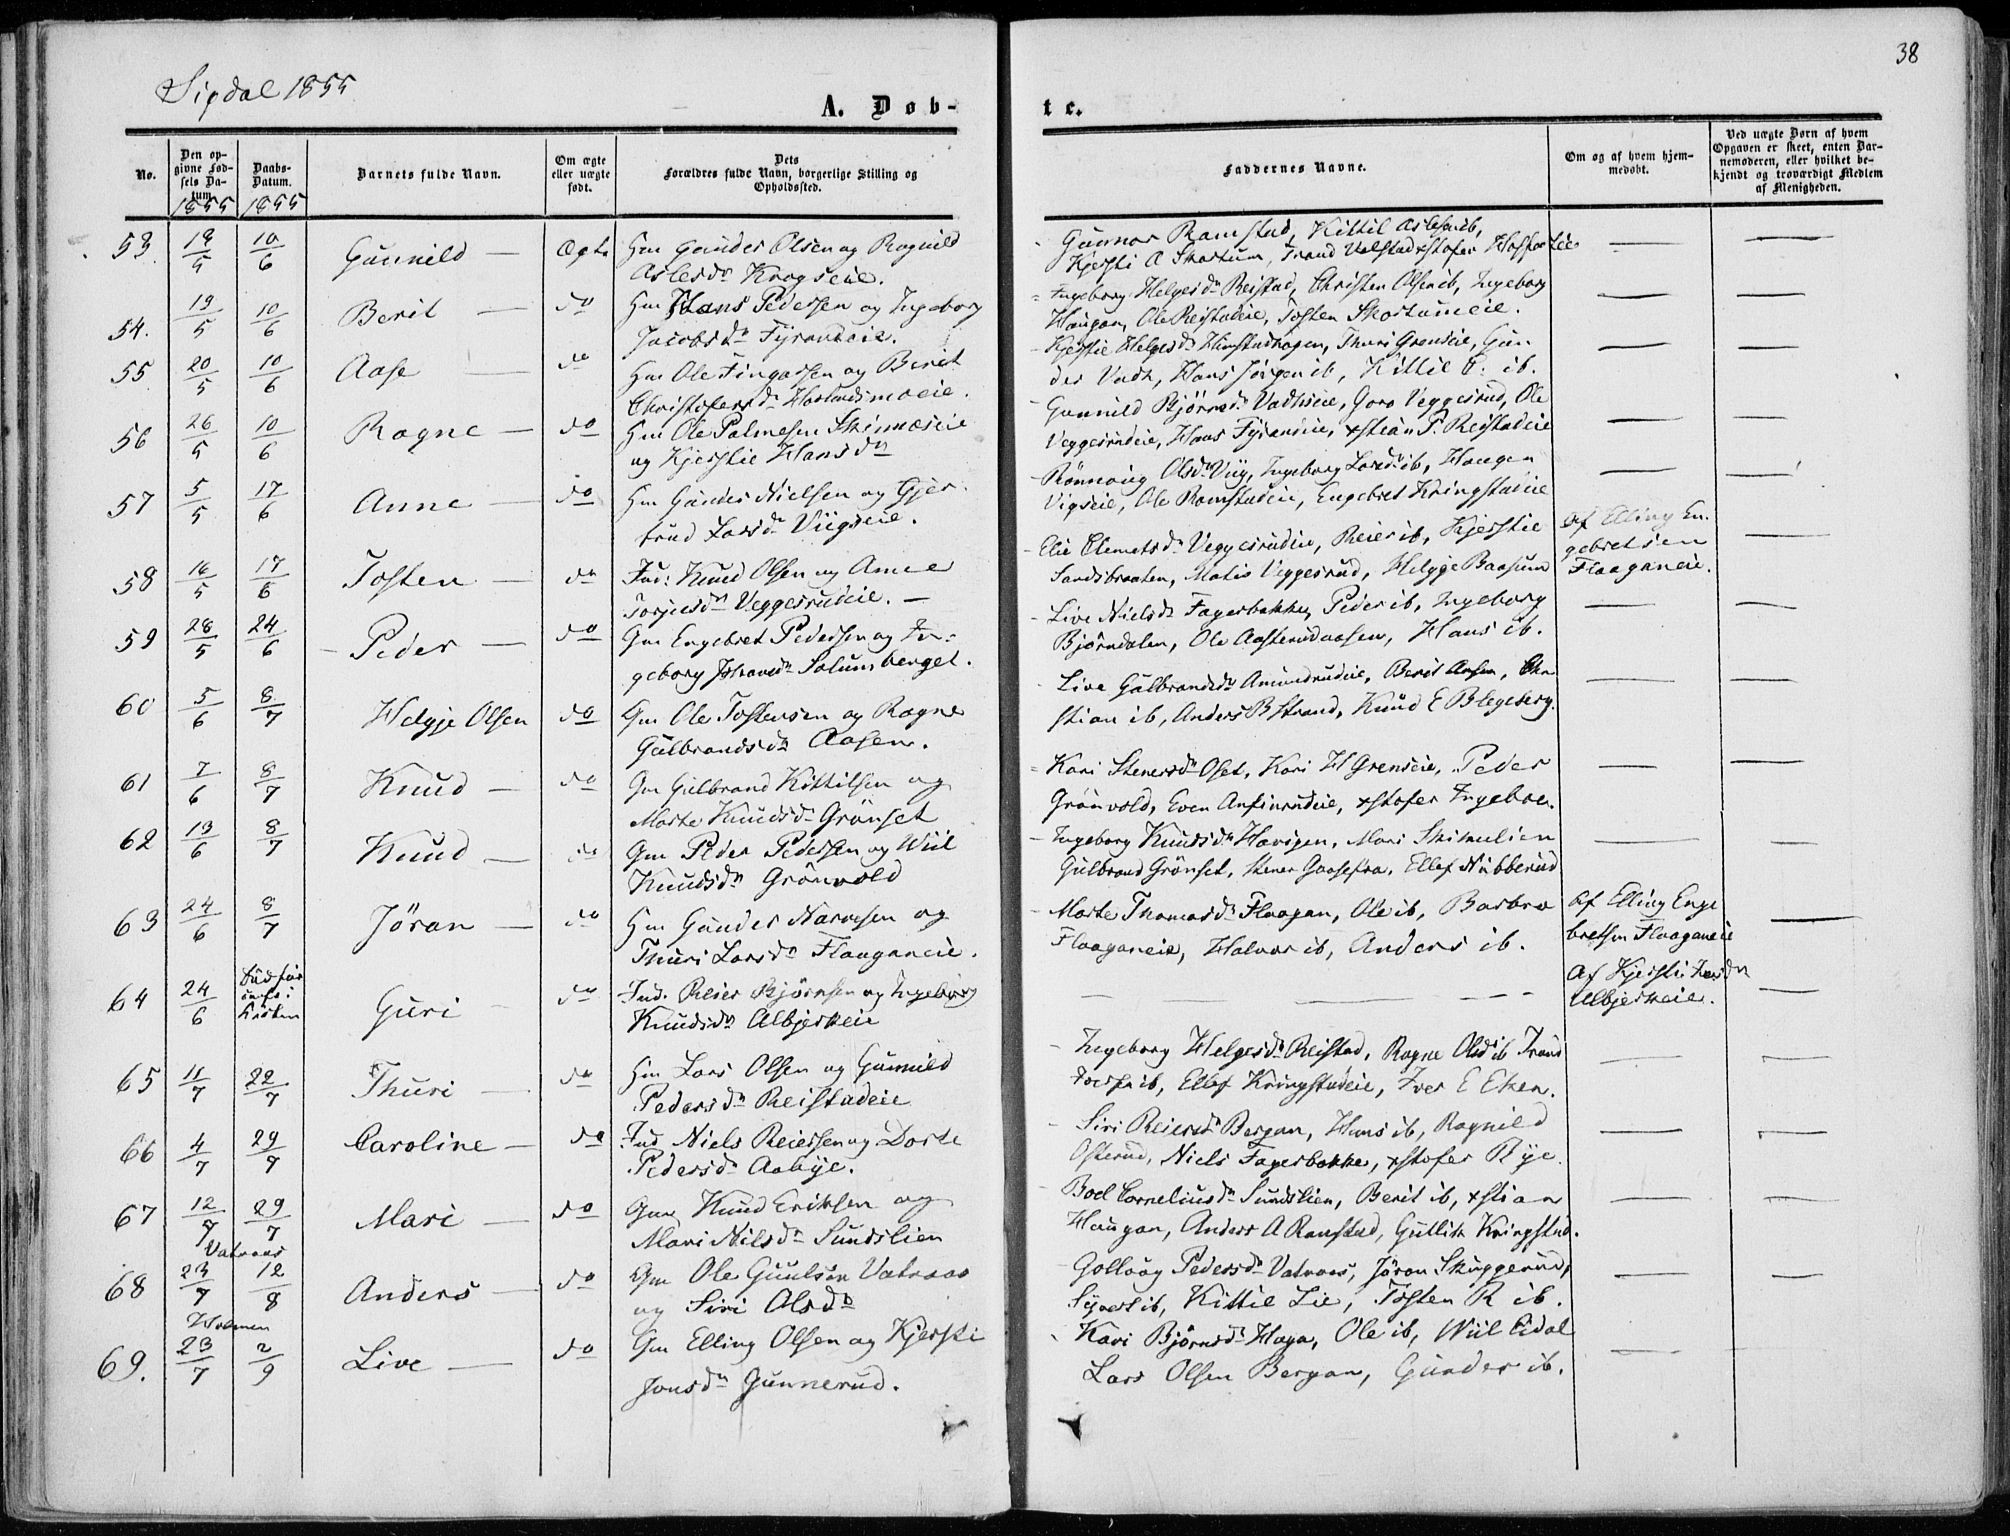 Sigdal 1855
38
A. Døb-
te.
No.
Den op-
givne Fød-
sels Da-
tum.
1855
Daabs-
Datum.
1855
Barnets fulde Navn.
Om ægte
eller uægte
født.
Dets
Forældres fulde Navn, borgerlige Stilling og
Opholdssted.
Faddernes Navne.
Om og af hvem hjem-
medøbt.
Ved uægte Børn af hvem
Opgaven er skeet, enten Bar-
nemoderen, eller hvilket be-
kjendt og troværdigt Medlem
af Menigheden.
53. 10/6 Gunnild — Ægte Hm Gunder Olsen og Ragnild
Aslesdr Krogseie.
Gunnar Ramstad, Kittil Aslesen ib,
Kjersti A Skartum, Trond Velstad
54. 19/5 10/6 Berit — do Hm Hans Pedersen og Ingeborg
Jacobsdr
Ingeborg Helgesdr Reistad, Christen Olsen ib, Ingeborg
Haugan, Ole Reistadeie, Tosten Skartumeie.
55 20/5 10/6 Aase — do Hm Ole Fingarsen og Berit
Christofersdr
Kjerstie Helgesdr Thuri Grenseie, Gun
der Vadh, Hans Jörgen ib, Kittil G. ib.
56 26/5 10/6 Ragne — do Hm Ole Palmesen
og Kjerstie Hansdr
Gunnild Björnsdr Vadhseie, Goro Veggesrud, Ole
Veggesrudeie, Hans xstian P. Reistadeie
57 5/5 17/6 Anne — do Hm Gunder Nielsen og Gjer
trud Larsdr Viigseie.
Rönnaug Olsdr Viig, Ingeborg Larsdr ib, Haagen
Vigseie, Ole Ramstadeie, Engebret Kringstadeie
58 16/5 17/6 Tosten — do Ind: Knud Olsen og Anne
Torjusdr Veggesrudeie. —
Elie Clemetsdr Veggesrudeie, Reier ib, Kjerstie
Sandsbraaten, Mathis Veggesrud, Helgje Baasum
Af Elling En-
gebretsen
Flaaganeie.
59 28/5 24/6 Peder — do Gm Engebret Pedersen og In-
geborg Solumsberget.
Live Nielsdr Fagerbakke, Peder ib, Ingeborg
Björndalen, Ole Hans ib.
60 5/6 8/7 Helgje Olsen do Gm Ole Tostensen og Ragne
Gulbrandsdr Aasen.
Live Gulbrandsdr Amundrudeie, Berit Aasen, Chri
stian ib, Anders B Strand, Knud E Blegeberg.
61 7/6 8/7 Knud — do Gm Gulbrand Kittilsen og
Marte Knudsdr Grönset
Kari Stenersdr Oset, Kari H Grenseie, Peder
Grönvold, Even Anfinrudeie, xstofer
62 13/6 8/7 Knud — do Gm Peder Pedersen og Wiil
Knudsdr Grönvold
Ingeborg Knudsdr Mari
Gulbrand Grönset, Stener Ellef Nubberud
63 24/6 8/7 Jöran — do Hm Gunder Narvesen og
Thuri Larsdr Flaaganeie.
Marte Thomasdr Flaagan, Ole ib, Barbro
Flaaganeie, Halvor ib, Anders ib.
Af Elling Enge
bretsen Flaaganeie
64 24/6 i
Kirken Guri — do Ind. Reier Björnsen og Ingeborg
Knudsdr Albjerkeie
Af Kjersti
Albjerkeie.
65 11/7 22/7 Thuri — do Hm Lars Olsen og Gunnild
Pedersdr Reistadeie
Ingeborg Helgesdr Reistad, Ragne Olsdr ib Trond
Iversen ib, Ellef Kringstadeie, Iver E Eken.
66 4/7 29/7 Caroline — do Ind Niels Reiersen og Dorte
Pedersdr Aabye.
Siri Reiersdr Bergan, Hans ib, Ragnild
Osterud, Niels Fagerbakke, xstofer Bye.
67 12/7 29/7 Mari — do Gm Knud Eriksen og
Mari Nilsdr Sundslien
Boel Corneliusdr Sundslien, Berit ib, xstian
Haugan, Anders A Ramstad, Gullik Kringstad.
Vatnaas
68 23/7 12/8 Anders — do Gm Ole Guulsen Vatnaas
og Siri Olsdr
Gollaug Pedersdr Vatnaas, Jöran Skuggerud,
Syvert ib, Kittil Lie, Tosten R ib.
Holmen
69. 23/7 2/9 Live — do Gm Elling Olsen og Kjersti
Jonsdr Gunnerud.
Kari Björnsdr Haga, Ole ib, Wiil Eidal
Lars Olsen Bergan, Gunder ib.